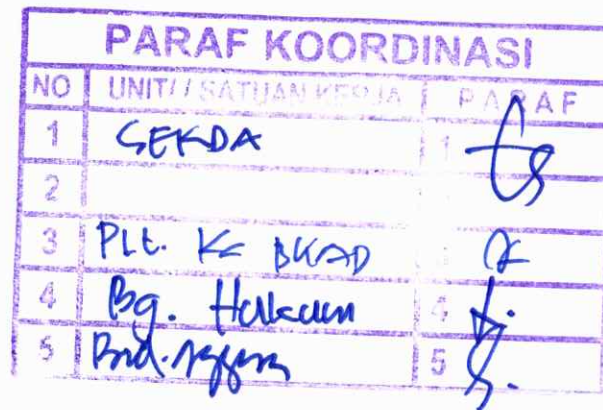 PARAF KOORDINASI
NO UNIT// SATUAN KERJA PARAF
1 SEKDA 1
2
3 PLt. Ka BKAD 3
4 Bg. Hukum 4
5 Bid. 5